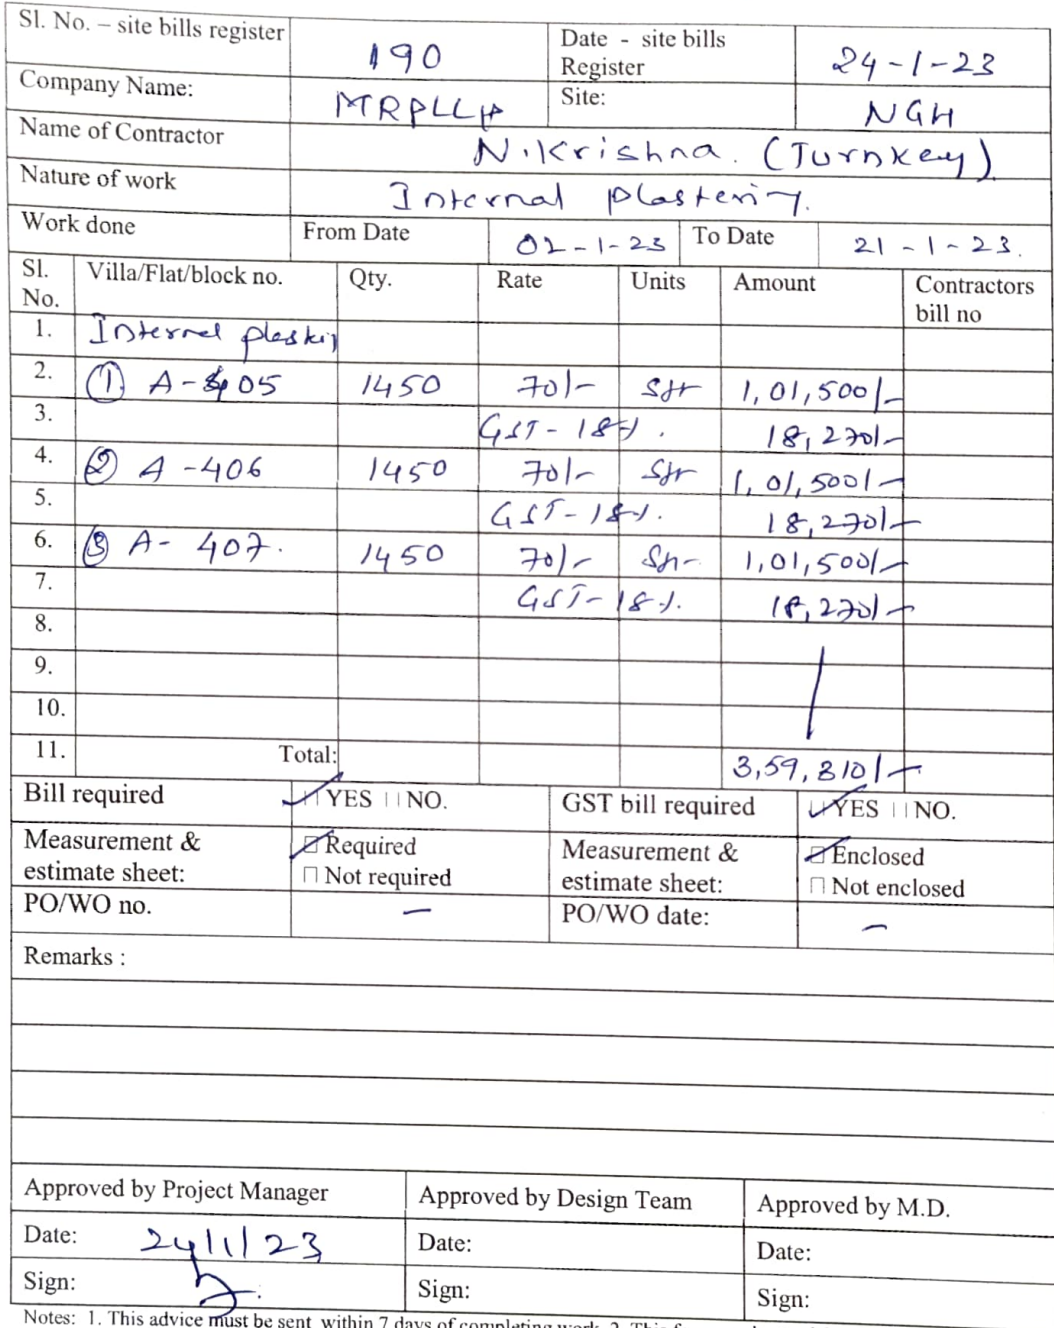 Sl. No. – site bills register 190 Date - site bills Register 24-1-23
Company Name: MRPLLP Site: NGH
Name of Contractor N.Krishna. (Turnkey)
Nature of work Internal plastering.
Work done From Date 02-1-23 To Date 21-1-23.
Sl. No. Villa/Flat/block no. Qty. Rate Units Amount Contractors bill no
1. Internal
2. (1) A-405 1450 70/- Sft 1,01,500/-
3. GST-18%. 18,270/-
4. (2) A-406 1450 70/- Sft 1,01,500/-
5. GST-18%. 18,270/-
6. (3) A-407. 1450 70/- Sft 1,01,500/-
7. GST-18%. 18,270/-
8.
9.
10.
11. Total: 3,59,310/-
Bill required YES NO. GST bill required YES NO.
Measurement & estimate sheet: Required Not required Measurement & estimate sheet: Enclosed Not enclosed
PO/WO no. – PO/WO date: –
Remarks :
Approved by Project Manager Approved by Design Team Approved by M.D.
Date: 24/1/23 Date: Date:
Sign: Sign: Sign:
Notes: 1. This advice must be sent within 7 days of completing work. 2. This